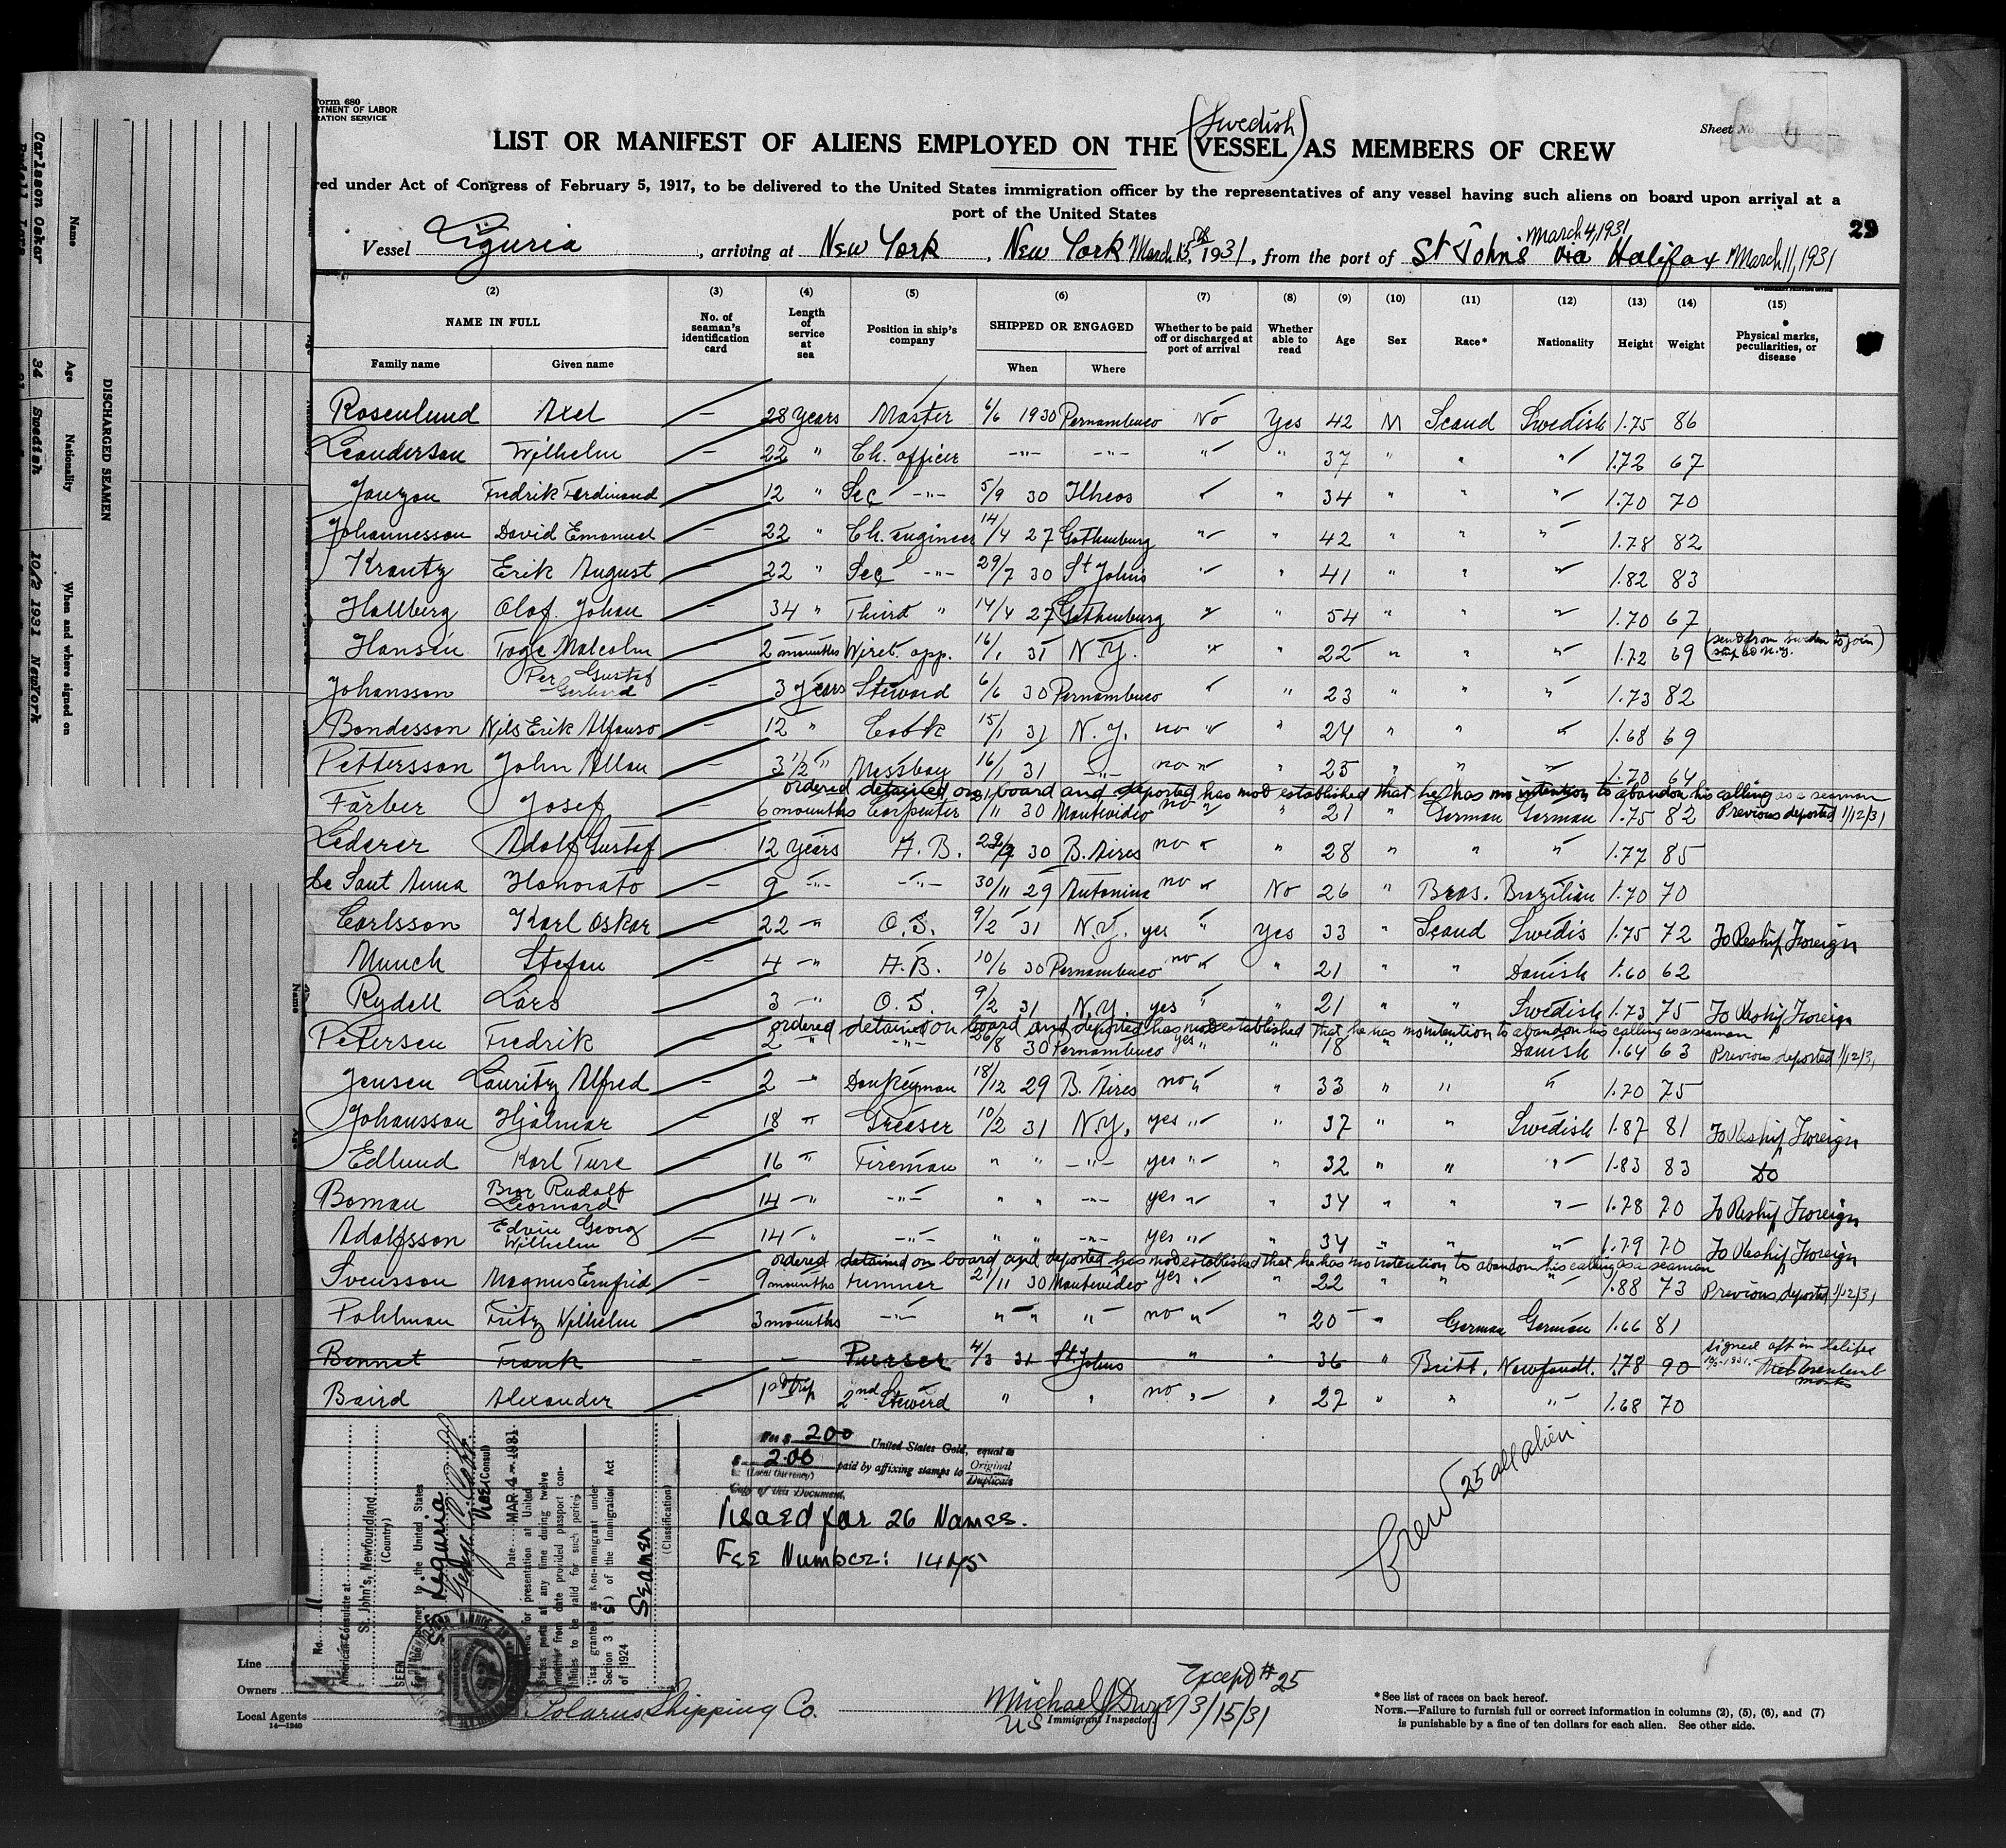 Form 680
RTMENT OF LABOR
RATION SERVICE
Sheet No.
(Swedish)
LIST OR MANIFEST OF ALIENS EMPLOYED ON THE VESSEL AS MEMBERS OF CREW
red under Act of Congress of February 5, 1917, to be delivered to the United States immigration officer by the representatives of any vessel having such aliens on board upon arrival at a
port of the United States
29
Vessel Liguria, arriving at New York, New York March 15th, 1931, from the port of St Johns March 4, 1931 via Halifax March 11, 1931
(2) (3) (4) (5) (6) (7) (8) (9) (10) (11) (12) (13) (14) (15)
NAME IN FULL No. of seaman's identification card Length of service at sea Position in ship's company SHIPPED OR ENGAGED Whether to be paid off or discharged at port of arrival Whether able to read Age Sex Race* Nationality Height Weight Physical marks, peculiarities, or disease
Family name Given name When Where
Rosenlund Axel — 28 years Master 6/6 1930 Pernambuco No Yes 42 M Scand Swedish 1.75 86
Leanderson Wilhelm — 22 " Ch. officer -"- -"- " " 37 " " " 1.72 67
Fredrik Ferdinand — 12 " Sec -"- 5/9 30 Ilheos " " 34 " " " 1.70 70
Johannesson David Emanuel — 22 " Ch. engineer 14/4 27 Gothenburg " " 42 " " " 1.78 82
Krantz Erik August — 22 " Sec -"- 29/7 30 St Johns " " 41 " " " 1.82 83
Hallberg Olof Johan — 34 " Third " 14/4 27 Gothenburg " " 54 " " " 1.70 67
Hansén Tage Malcolm — 2 mounths Wirel. opp. 16/1 31 N.Y. " " 22 " " " 1.72 69 (sent from Sweden to join ship at N.Y.)
Johansson Per Gustaf Gerhard — 3 years Steward 6/6 30 Pernambuco " " 23 " " " 1.73 82
Bondesson Nils Erik Alfonso — 12 " Cook 15/1 31 N.Y. no " " 24 " " " 1.68 69
Pettersson John Allan — 3 1/2 " Messboy 16/1 31 -"- no " " 25 " " " 1.70 64
ordered detained on board and deported has not established that he has no intention to abandon his calling as a seaman
Färber Josef — 6 mounths Carpenter 21/11 30 Montevideo no " " 21 " German German 1.75 82 Previous deported 1/12/31
Lederer Adolf Gustaf 12 years A.B. 30 B. Aires no " " 28 " " " 1.77 85
de Sant Anna Honorato — 9 -"- -"- 30/11 29 Antonina no " No 26 " Bras. Brazilian 1.70 70
Carlsson Karl Oskar — 22 " O.S. 9/2 31 N.Y. yes " Yes 33 " Scand Swedis 1.75 72 To Reship Foreign
Munch Stefan — 4 " A.B. 10/6 30 Pernambuco no " " 21 " " Danish 1.60 62
Rydell Lars 3 " O.S. 9/2 31 N.Y. yes " " 21 " " Swedish 1.73 75 To Reship Foreign
ordered detained on board and deported has not established that he has no intention to abandon his calling as a seaman
Petersen Fredrik — 2 " -"- 26/8 30 Pernambuco yes " " 18 " " Danish 1.64 63 Previous deported 1/12/31
Jensen Lauritz Alfred — 2 " Donkeyman 18/12 29 B. Aires no " " 33 " " " 1.70 75
Johansson Hjalmar — 18 " Greaser 10/2 31 N.Y. yes " " 37 " " Swedish 1.87 81 To Reship Foreign
Edlund Karl Ture — 16 " Fireman " " -"- yes " " 32 " " " 1.83 83 Do
Boman Bror Rudolf Leonnard — 14 " -"- " " -"- yes " " 34 " " " 1.78 70 To Reship Foreign
Adolfsson Edvin Georg Wilhelm — 14 " -"- " " -"- yes " " 34 " " " 1.79 70 To Reship Foreign
ordered detained on board and deported has not established that he has no intention to abandon his calling as a seaman
Svensson Magnus Ernfrid — 9 mounths 21/11 30 Montevideo yes " " 22 " " " 1.88 73 Previous deported 1/12/31
Pohlman Fritz Wilhelm 3 mounths -"- " " " no " " 20 " German German 1.66 81
Bennet Frank — — Purser 4/3 31 St. Johns " " 36 " Britt. Newfoundl. 1.78 90 signed off in Halifax
Baird Alexander — 1st trip 2nd Steward " " no " " 27 " " " 1.68 70
Fee $ 2.00 United States Gold, equal to
$ 2.00 paid by affixing stamps to Original
(Local Currency) Duplicate
Copy of this Document.
Visaed for 26 Names.
Fee Number: 1475
Crew 25 all alien
No. 11
American Consulate at
St. John's, Newfoundland
(Country)
SEEN
For the journey to the United States
SS Liguria
Vice (Consul)
Date MAR 4 - 1931
for presentation at United
States ports at any time during twelve
months from date provided passport con-
tinues to be valid for such period
Visa granted as Non-immigrant under
Section 3 (5) of the Immigration Act
of 1924
Seamen
(Classification)
Line
Owners
Local Agents Solarus Shipping Co.
14—1240
Except # 25
3/15/31
US Immigrant Inspector
*See list of races on back hereof.
NOTE.—Failure to furnish full or correct information in columns (2), (5), (6), and (7)
is punishable by a fine of ten dollars for each alien. See other side.
DISCHARGED SEAMEN
Name Age Nationality When and where signed on
Carlsson Oskar 34 Swedish 10/2 1931 NewYork